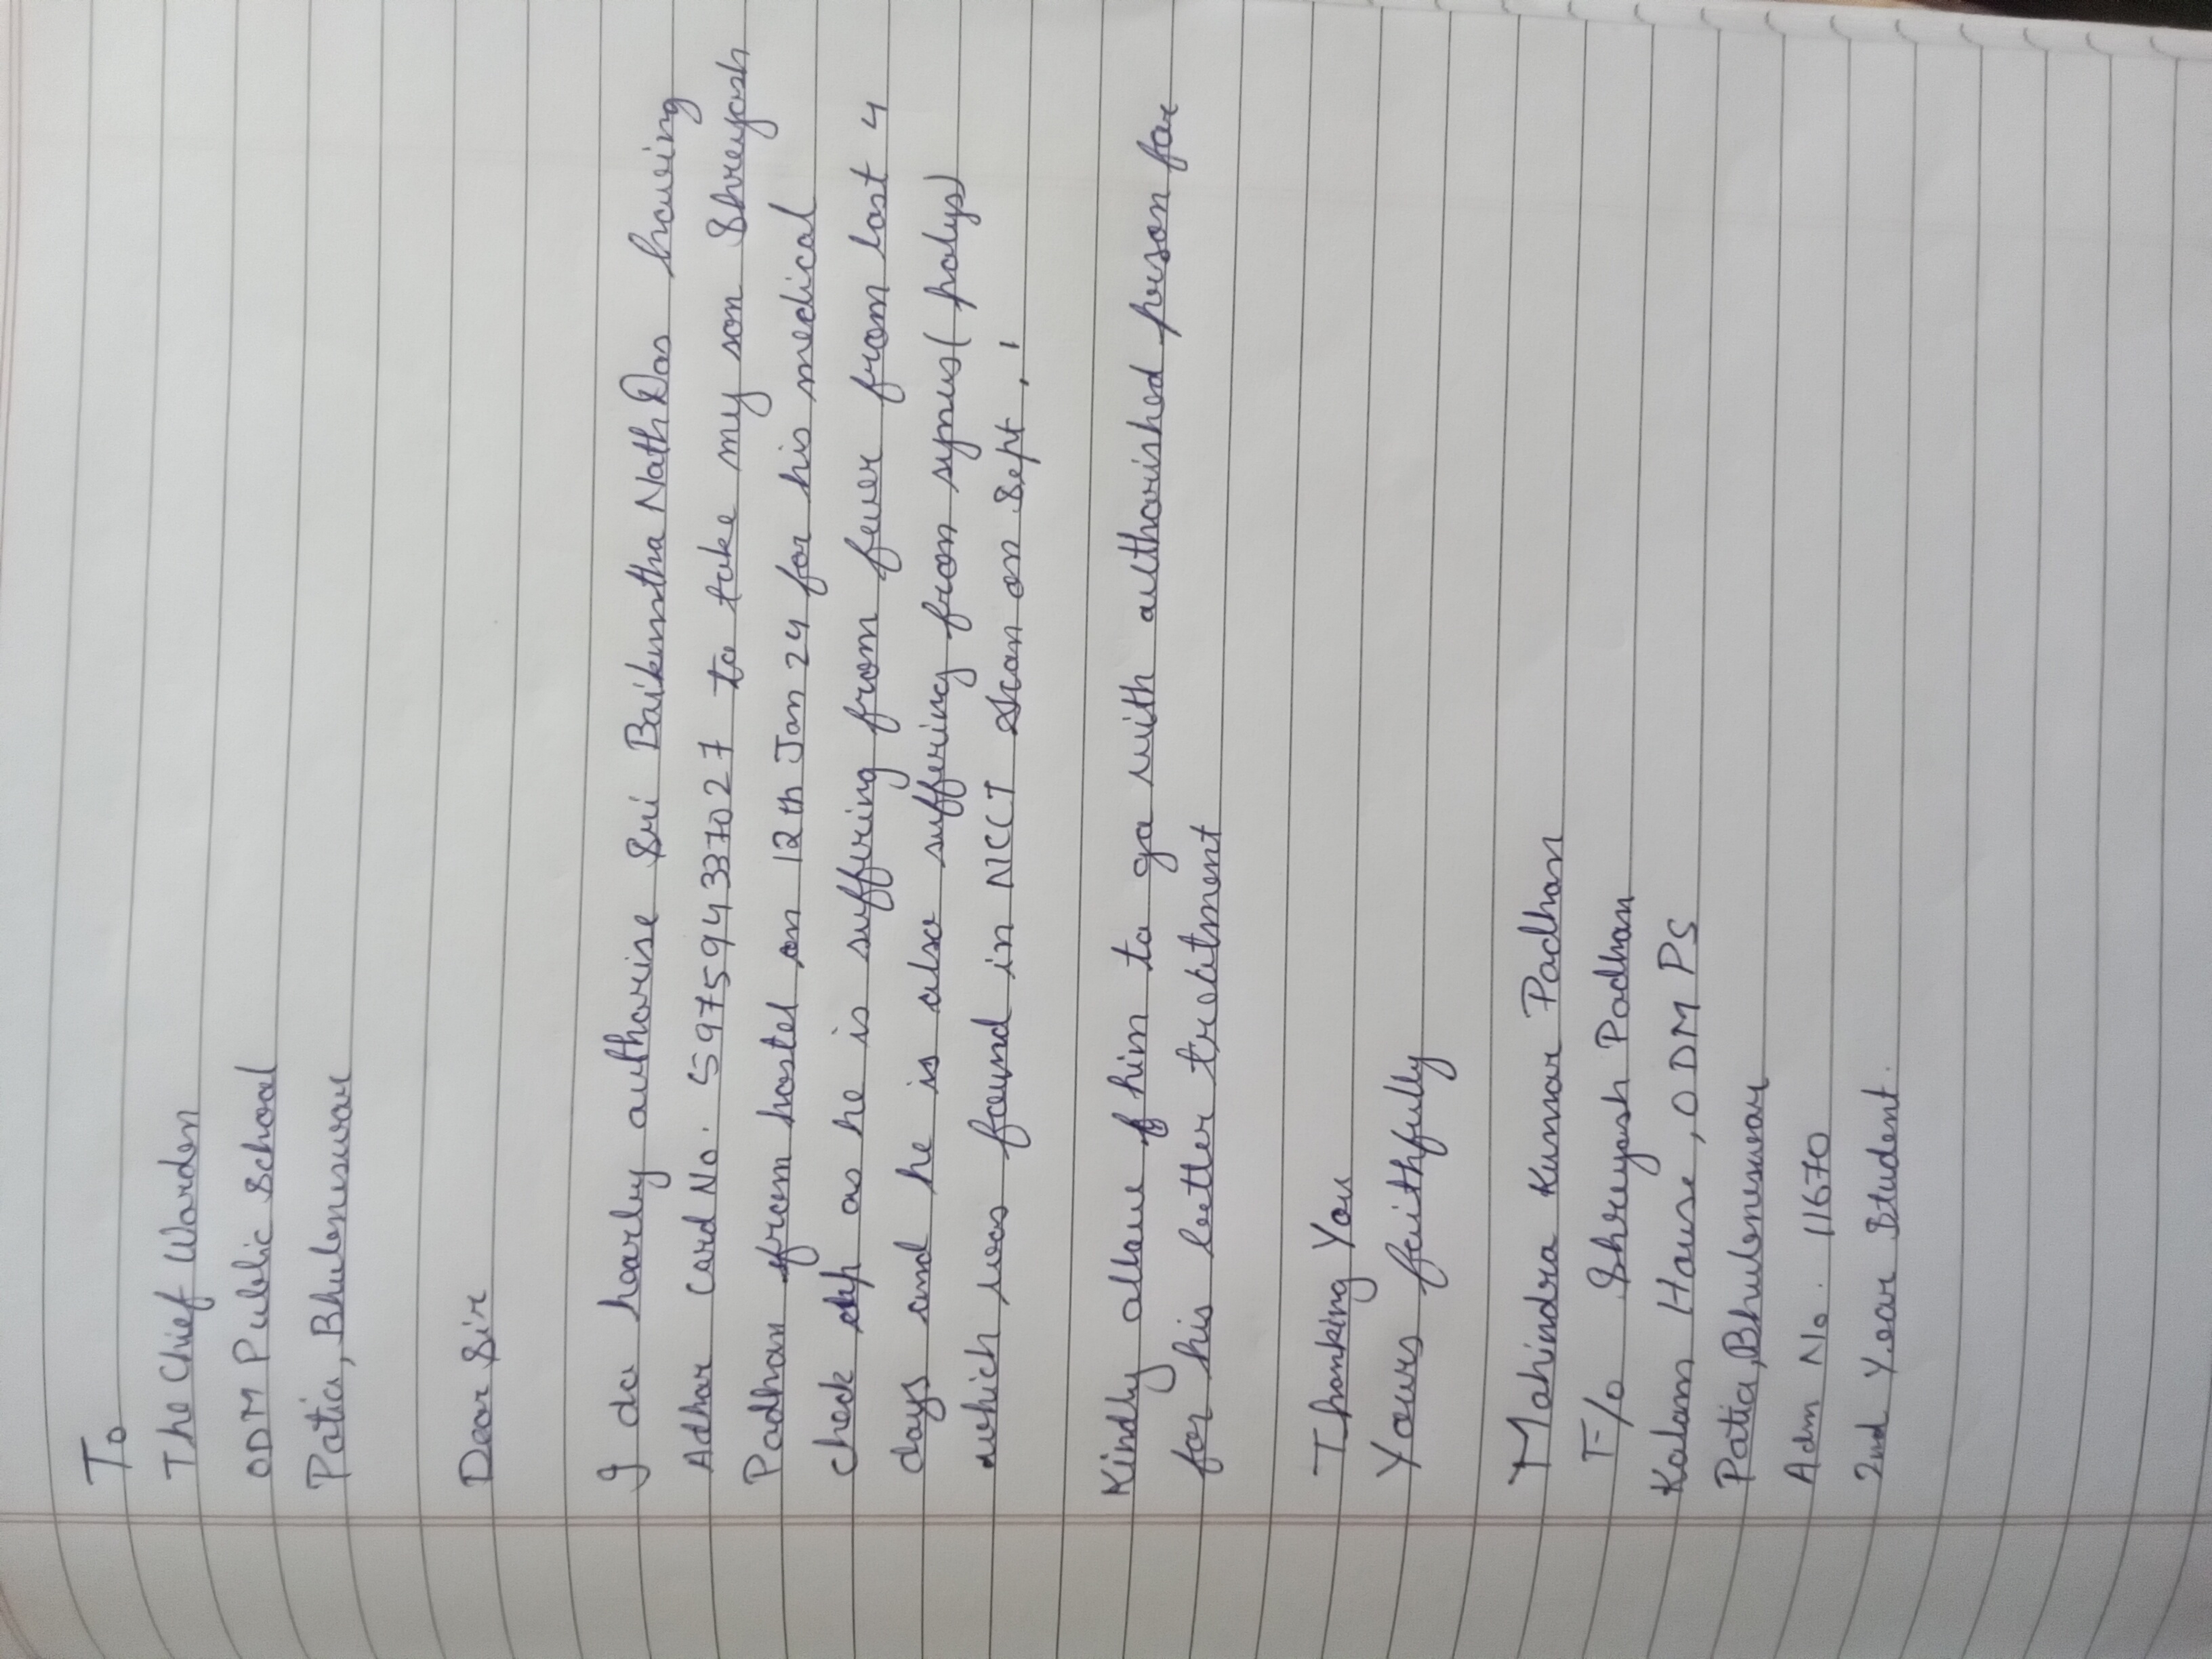 To
The Chief Warden
ODM Public School
Patia, Bhubneswar
Dear Sir
I do hearby authorise Sri Baikuntha Nath Das having
Adhar Card No. 597594337027 to take my son Shreyash
Padhan from hostel on 12th Jan 24 for his medical
check up as he is suffering from fever from last 4
days and he is also suffering from synus (polys)
which was found in NCCT scan on Sept,
Kindly allow him to go with authorished person for
for his better treatment
Thanking You
Yours faithfully
Mahindra Kumar Padhan
F/o Shreyash Padhan
Kalam House, ODM PS
Patia, Bhubneswar
Adm No. 11670
2nd Year Student.